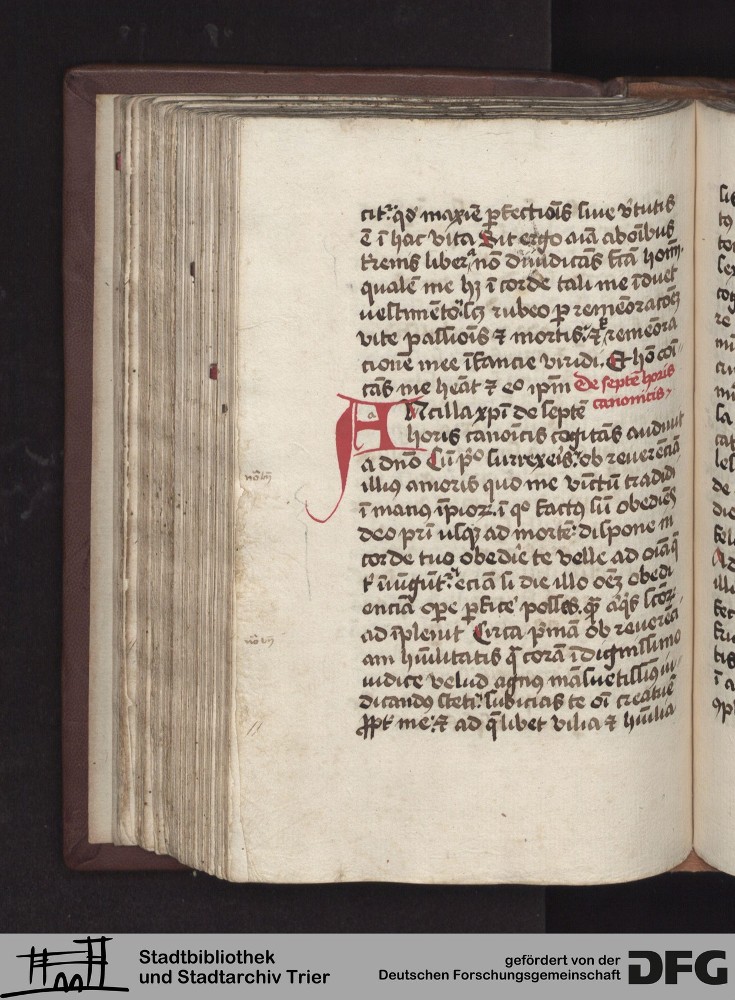 citᷣ qd̕ maxīe ꝑfectiōis siue v̕tutis
ē ī hac vita Sit ergo aīa ab oībus
t̕renis libera nō diiudicās
qualē me hꝫ ī corde tali me īduet
uestimēto scꝫ rubeo ꝑ rememoracōeꝫ
vite passiōis ⁊ mortis ⁊ rememora
cionē mee īfancie viridi. Et
tās me heāt ⁊ eo ip̄m De septē horis
canonicis
Ancilla xp̄i de septē
horis canoīcis cogitās audiuit
a dn̄o Cū pͦ surrexeis ob reuerēciā
illiꝰ amoris quo me vīctū tradidi
ī manꝰ īpioꝝ. ī qͦ factꝰ sū obediēs
deo pr̄i usqꝫ ad mortē dispone ī
corde tuo obedie te velle ad oīa q̄
t̕ iūgūtᷣ eciā si die illo oēꝫ obedi
enciā oꝑe ꝑfice posses. qā aͥqͥs
ad īpleuit Circa pͥmā ob reuerēci
am hūilitatis q̄ corā īdignissimo
iudice velud agnꝰ māsuetissimꝰ iu-
dicandꝰ steti subicias te oī creature
ꝓpt̕ me ⁊ ad q̄libet vilia ⁊ hūilia
Stadtbibliothek
und Stadtarchiv Trier
gefördert von der
Deutschen Forschungsgemeinschaft
DFG